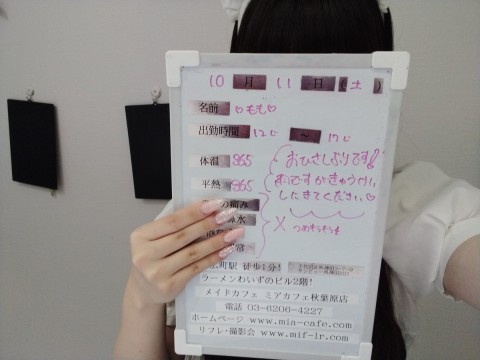 10 月 11 日 (土)
名前 ♡もも♡
出勤時間 12じ ～ 17じ
体温 36.5
平熱 36.5
おひさしぶりです!!
雨ですがきゅうけい
しにきてください♡
の痛み
鼻水
×
常
町駅 徒歩1分!
ラーメンわいずのビル2階!
メイドカフェ ミアカフェ秋葉原店
電話 03-6206-4227
ホームページ www.mia-cafe.com
リフレ・撮影会 www.mif-lr.com